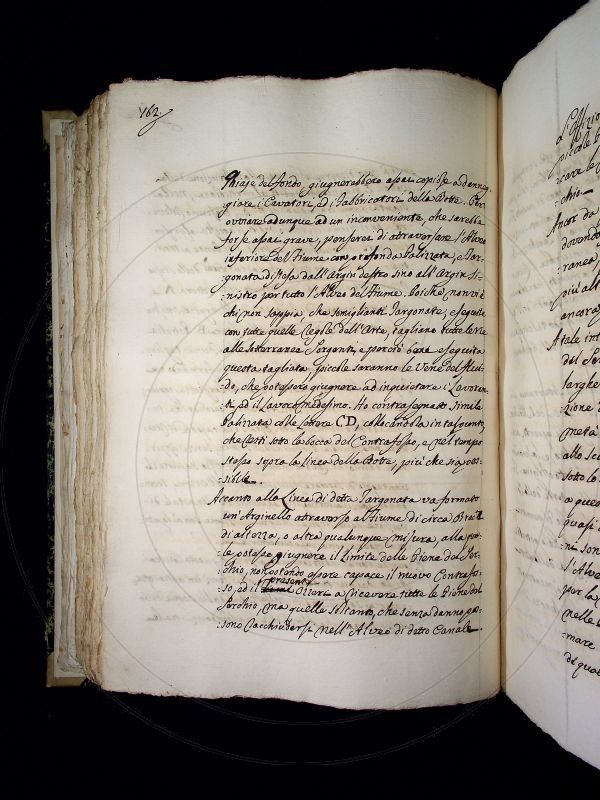 162.
Ghiaje del fondo, giugnerebbero assai copiose a danneg-
giare i Cavatori, ed i Fabbricatori della Botte. Per
ovviare adunque ad un inconveniente, che sarebbe
forse assai grave, penserei di atraversare l'Alveo
inferiore del Fiume con profonda Palizzata, e Tar-
gonata distesa dall'Argin destro sino all'Argin Si-
nistro per tutto l'Alveo del Fiume. Poiche non v'è
chi non sappia, che somiglianti Targonate, eseguite
con tutte quelle Regole dell'Arte, tagliano tutte le vie
alle sotterranee Sorgenti, e perciò bene eseguita
questa tagliata, piccole saranno le Vene del Flui-
do, che potessero giugnere ad inquietare i Lavoran-
ti, ed il Lavoro medesimo. Ho contrasegnato simile
Palizata colle lettere CD, collocandola in tal punto,
che resti sotto la bocca del Contrafosso, e nel tempo
stesso sopra la linea della Botte, più che sia pos-
sibile.
Accanto alla Linea di detta Targonata va formato
un'Arginello atraverso al Fiume di circa Braccia
di altezza, o altra qualunque misura, alla qua-
le potesse giugnere il Limite delle Piene del Ser-
chio, non potendo essere capace il nuovo Contrafos-
presente
so, ed il Ozzeri a ricevere tutte le Piene del
Serchio, ma quelle soltanto, che senza danno pos-
sono racchiudersi nell'Alveo di detto Canale.